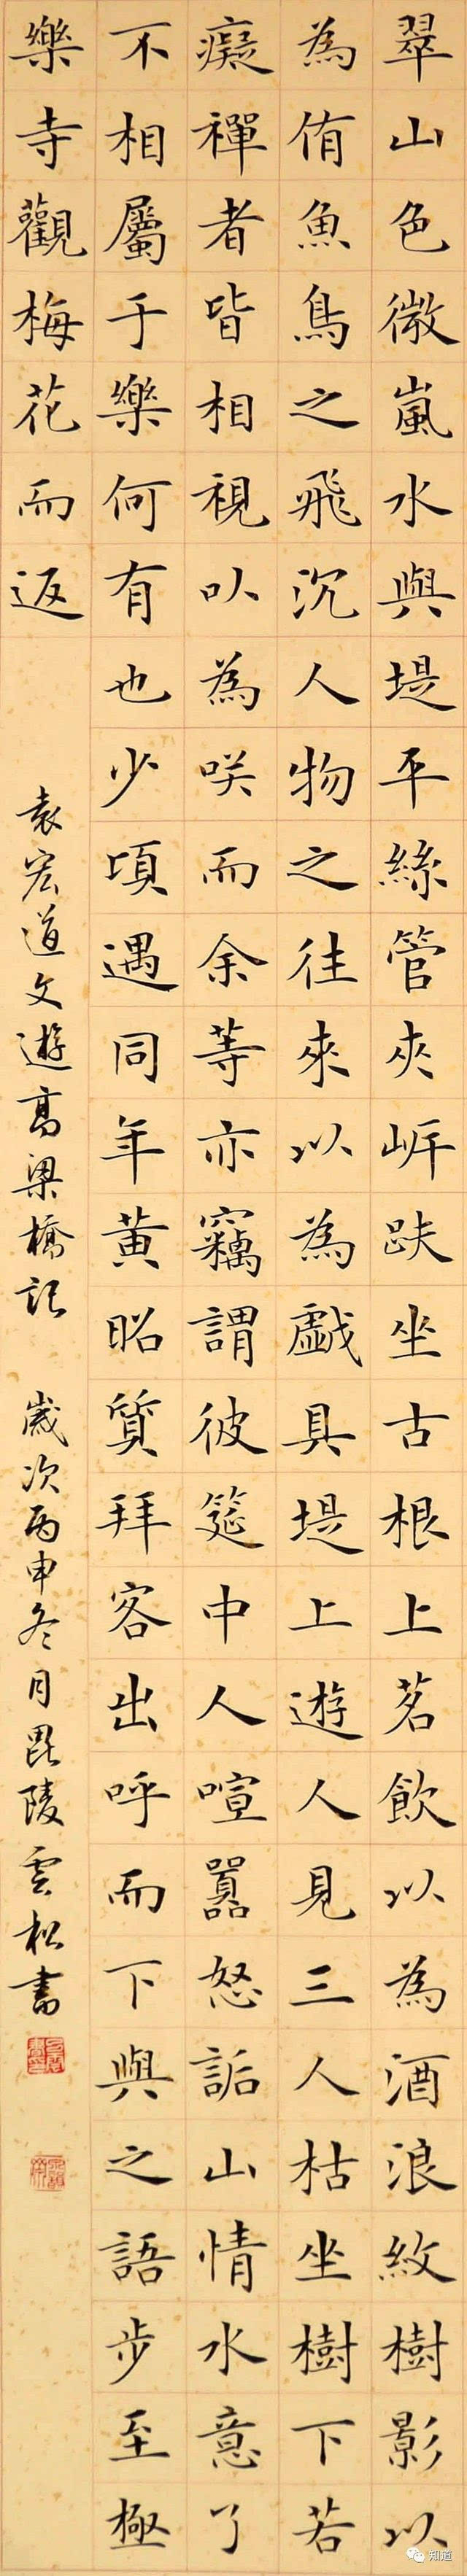 翠山色微嵐水與堤平絲管夾岓趺坐古根上茗飲以為酒浪紋樹影以
為侑魚鳥之飛沉人物之往來以為戲具堤上遊人見三人枯坐樹下若
癡禪者皆相視以為咲而余等亦竊謂彼筵中人喧囂怒詬山情水意了
不相屬于樂何有也少頃遇同年黃昭質拜客出呼而下與之語步至極
樂寺觀梅花而返
袁宏道文遊高梁橋記 歲次丙申冬月毘陵雲松書
知道